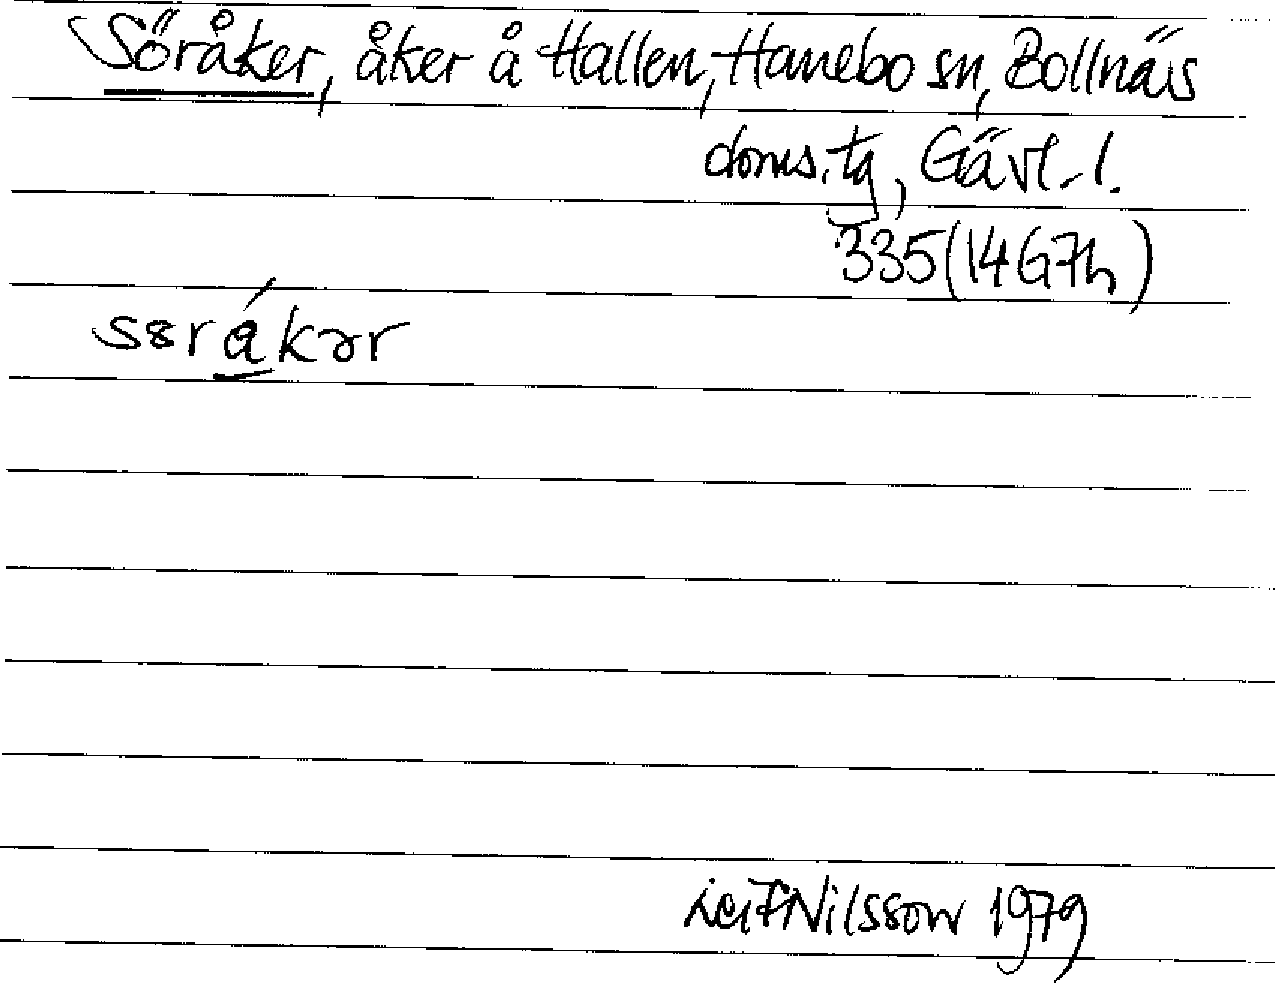 Söråker, åker å Hallen, Hanebo sn, Bollnäs
doms.tg, Gävl.l.
335 (14G7h)
s8rákər
Leif Nilsson 1979